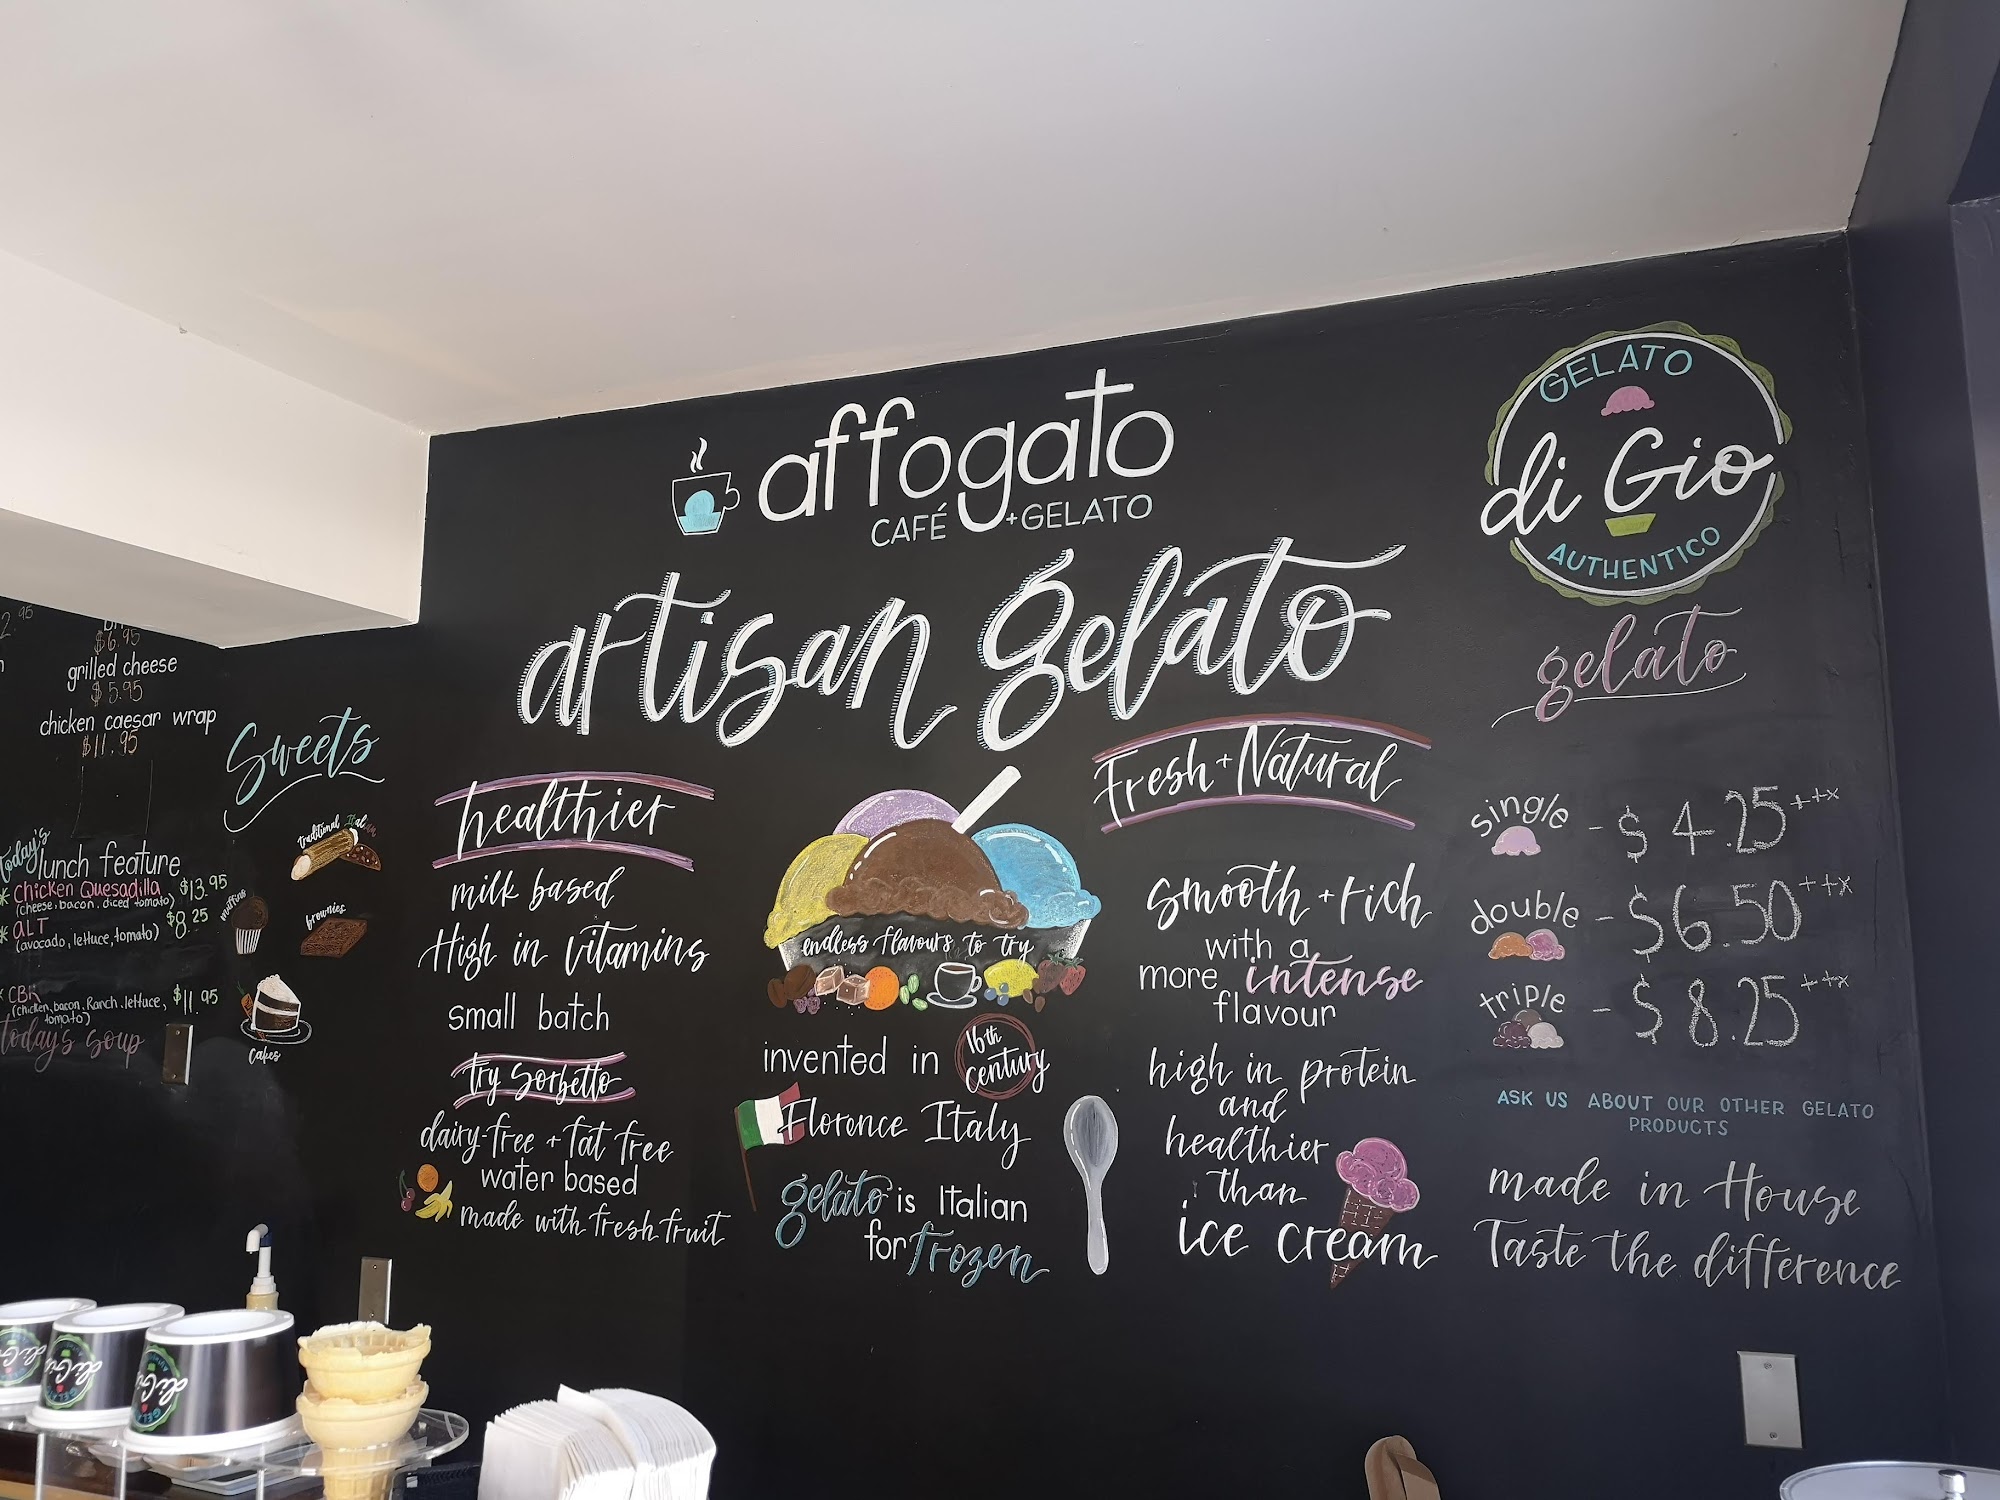 affogato
CAFÉ +GELATO
artisan gelato
GELATO
di Gio
AUTHENTICO
gelato
single - $4.25++x
double - $6.50++x
triple - $8.25++x
ASK US ABOUT OUR OTHER GELATO
PRODUCTS
made in House
Taste the difference
Fresh + Natural
smooth + rich
with a
more intense
flavour
high in protein
and
healthier
than
ice cream
endless flavours to try
invented in 16th
century
Florence Italy
gelato is Italian
for frozen
healthier
milk based
High in vitamins
small batch
try Sorbetto
dairy-free + fat free
water based
made with fresh fruit
Sweets
traditional Italian
muffins
brownies
Cakes
$6.95
grilled cheese
$5.95
chicken caesar wrap
$11.95
today's
lunch feature
* Chicken Quesadilla $13.95
(cheese, bacon, diced tomato)
* ALT $8.25
(avocado, lettuce, tomato)
* CBR $11.95
(chicken, bacon, Ranch, lettuce,
tomato)
today's soup
di Gio